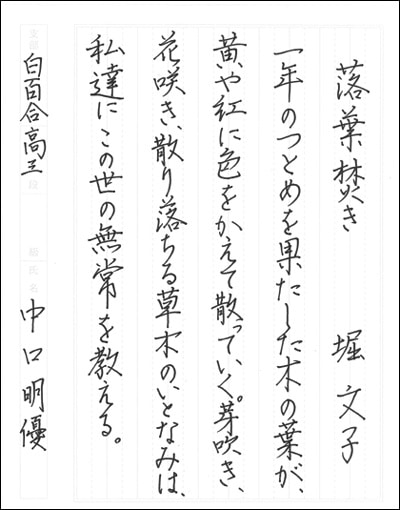 落葉焚き　堀文子
一年のつとめを果たした木の葉が、
黄や紅に色をかえて散っていく。芽吹き、
花咲き、散り落ちる草木のいとなみは、
私達にこの世の無常を教える。
支部 白百合高三 段級 氏名 中口明優